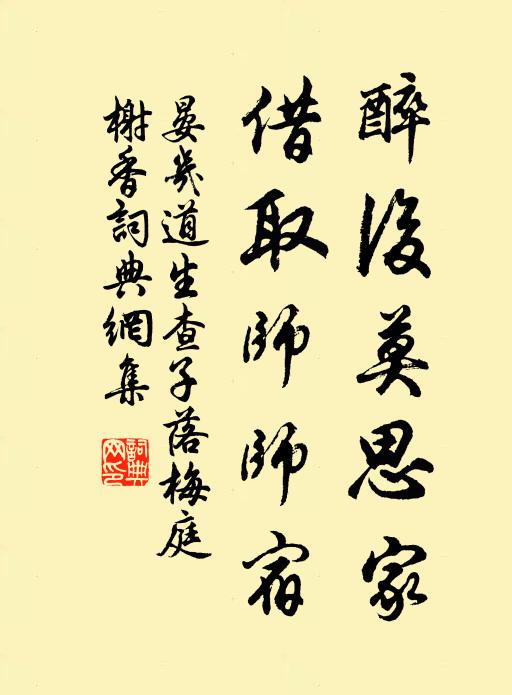 醉後莫思家
借取師師宿
晏幾道生查子落梅庭
榭香詞典網集
詞典
网印